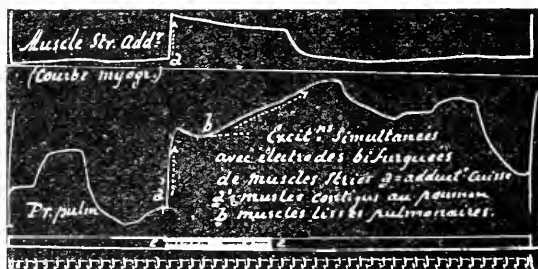 Muscle Str. Add.r
a
(Courbe myogr.)
b
Excit.ns Simultanées
avec électrodes bifurquées
de muscles striés a = adduct. Cuisse
a' = muscles contigus au poumon
b muscles lisses pulmonaires.
a'
Pr. pulm
e e